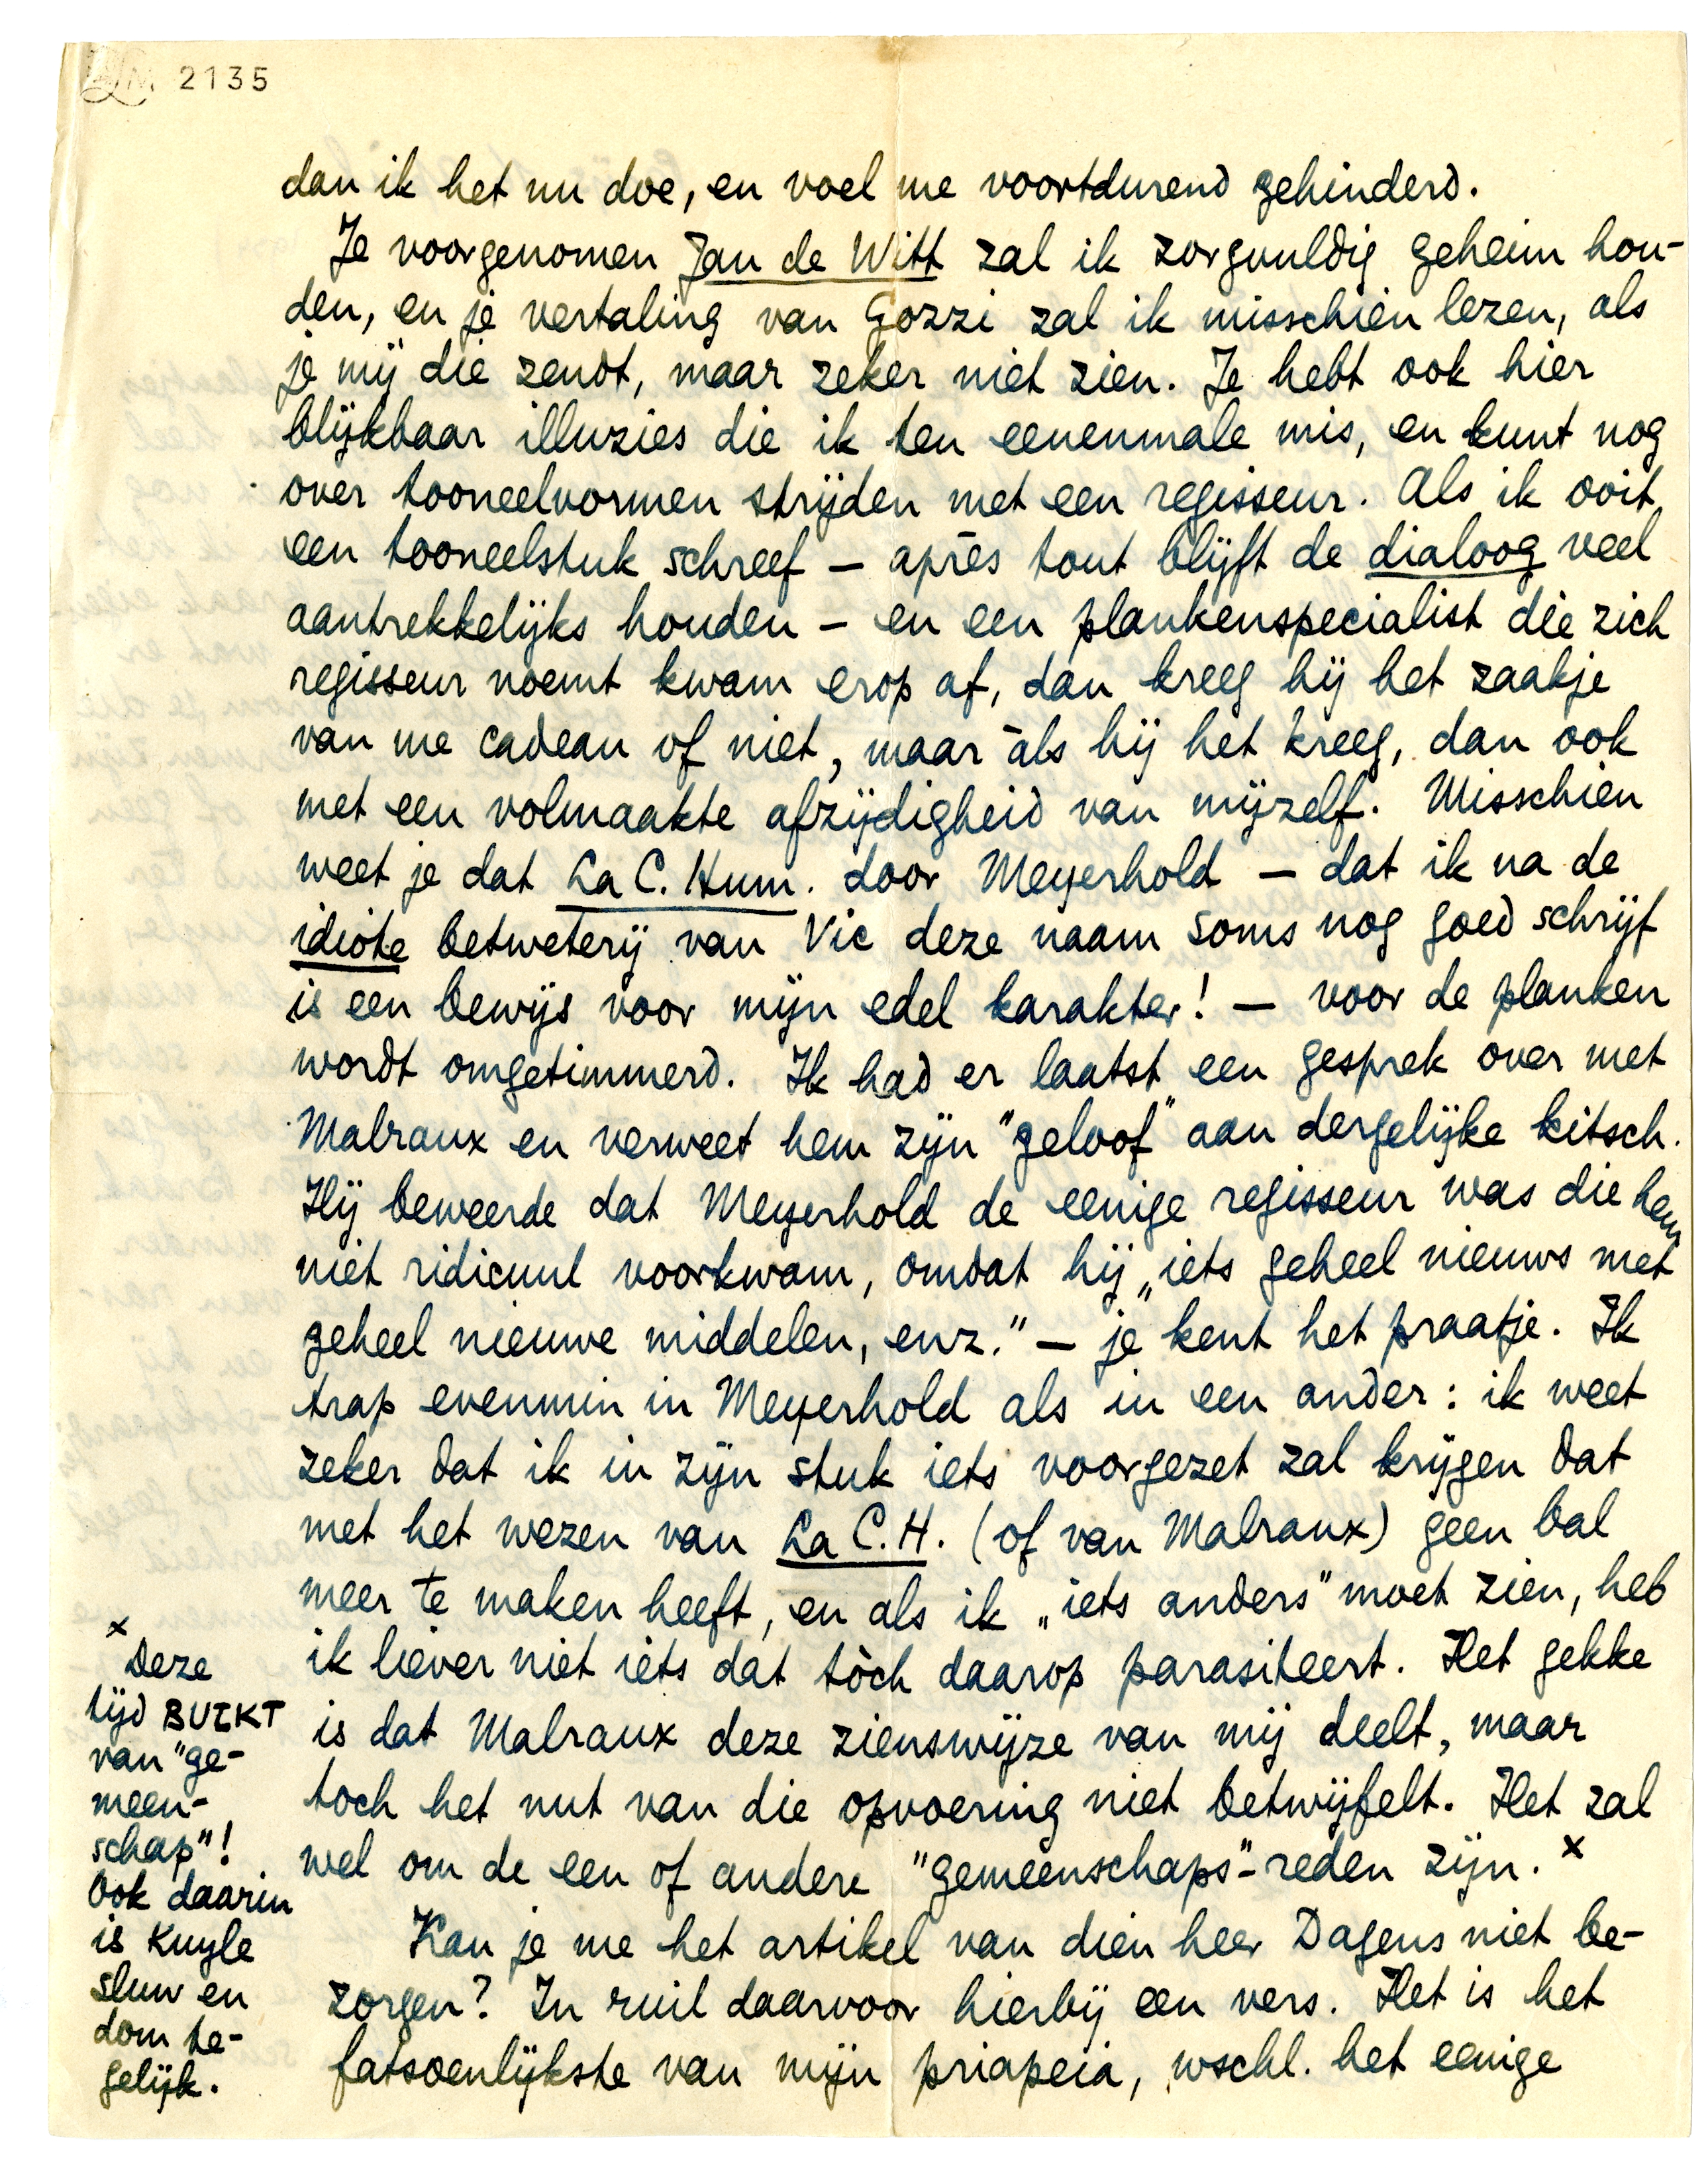 LM 2135
dan ik het nu doe, en voel me voortdurend gehinderd.
Je voorgenomen Jan de Witt zal ik zorgvuldig geheim hou-
den, en je vertaling van Gozzi zal ik misschien lezen, als
je mij die zendt, maar zeker niet zien. Je hebt ook hier
blijkbaar illuzies die ik ten eenenmale mis, en kunt nog
over tooneelvormen strijden met een regisseur. Als ik ooit
een tooneelstuk schreef – après tout blijft de dialoog veel
aantrekkelijks houden – en een plankenspecialist die zich
regisseur noemt kwam erop af, dan kreeg hij het zaakje
van me cadeau of niet, maar àls hij het kreeg, dan ook
met een volmaakte afzijdigheid van mijzelf. Misschien
weet je dat La C. Hum. door Meyerhold – dat ik na de
idiote betweterij van Vic deze naam soms nog goed schrijf
is een bewijs voor mijn edel karakter! – voor de planken
wordt omgetimmerd. Ik had er laatst een gesprek over met
Malraux en verweet hem zijn "geloof" aan dergelijke kitsch.
Hij beweerde dat Meyerhold de eenige regisseur was die hem
niet ridicuul voorkwam, omdat hij „iets geheel nieuws met
geheel nieuwe middelen, enz." – je kent het praatje. Ik
trap evenmin in Meyerhold als in een ander: ik weet
zeker dat ik in zijn stuk iets voorgezet zal krijgen dat
met het wezen van La C.H. (of van Malraux) geen bal
meer te maken heeft, en als ik „iets anders" moet zien, heb
ik liever niet iets dat tòch daarop parasiteert. Het gekke
is dat Malraux deze zienswijze van mij deelt, maar
toch het nut van die opvoering niet betwijfelt. Het zal
wel om de een of andere "gemeenschaps"-reden zijn. x
Kan je me het artikel van dien heer Dagens niet be-
zorgen? In ruil daarvoor hierbij een vers. Het is het
fatsoenlijkste van mijn priapeia, wschl. het eenige
x
Deze
tijd BUIKT
van "ge-
meen-
schap"!
Ook daarin
is Kuyle
sluw en
dom te-
gelijk.